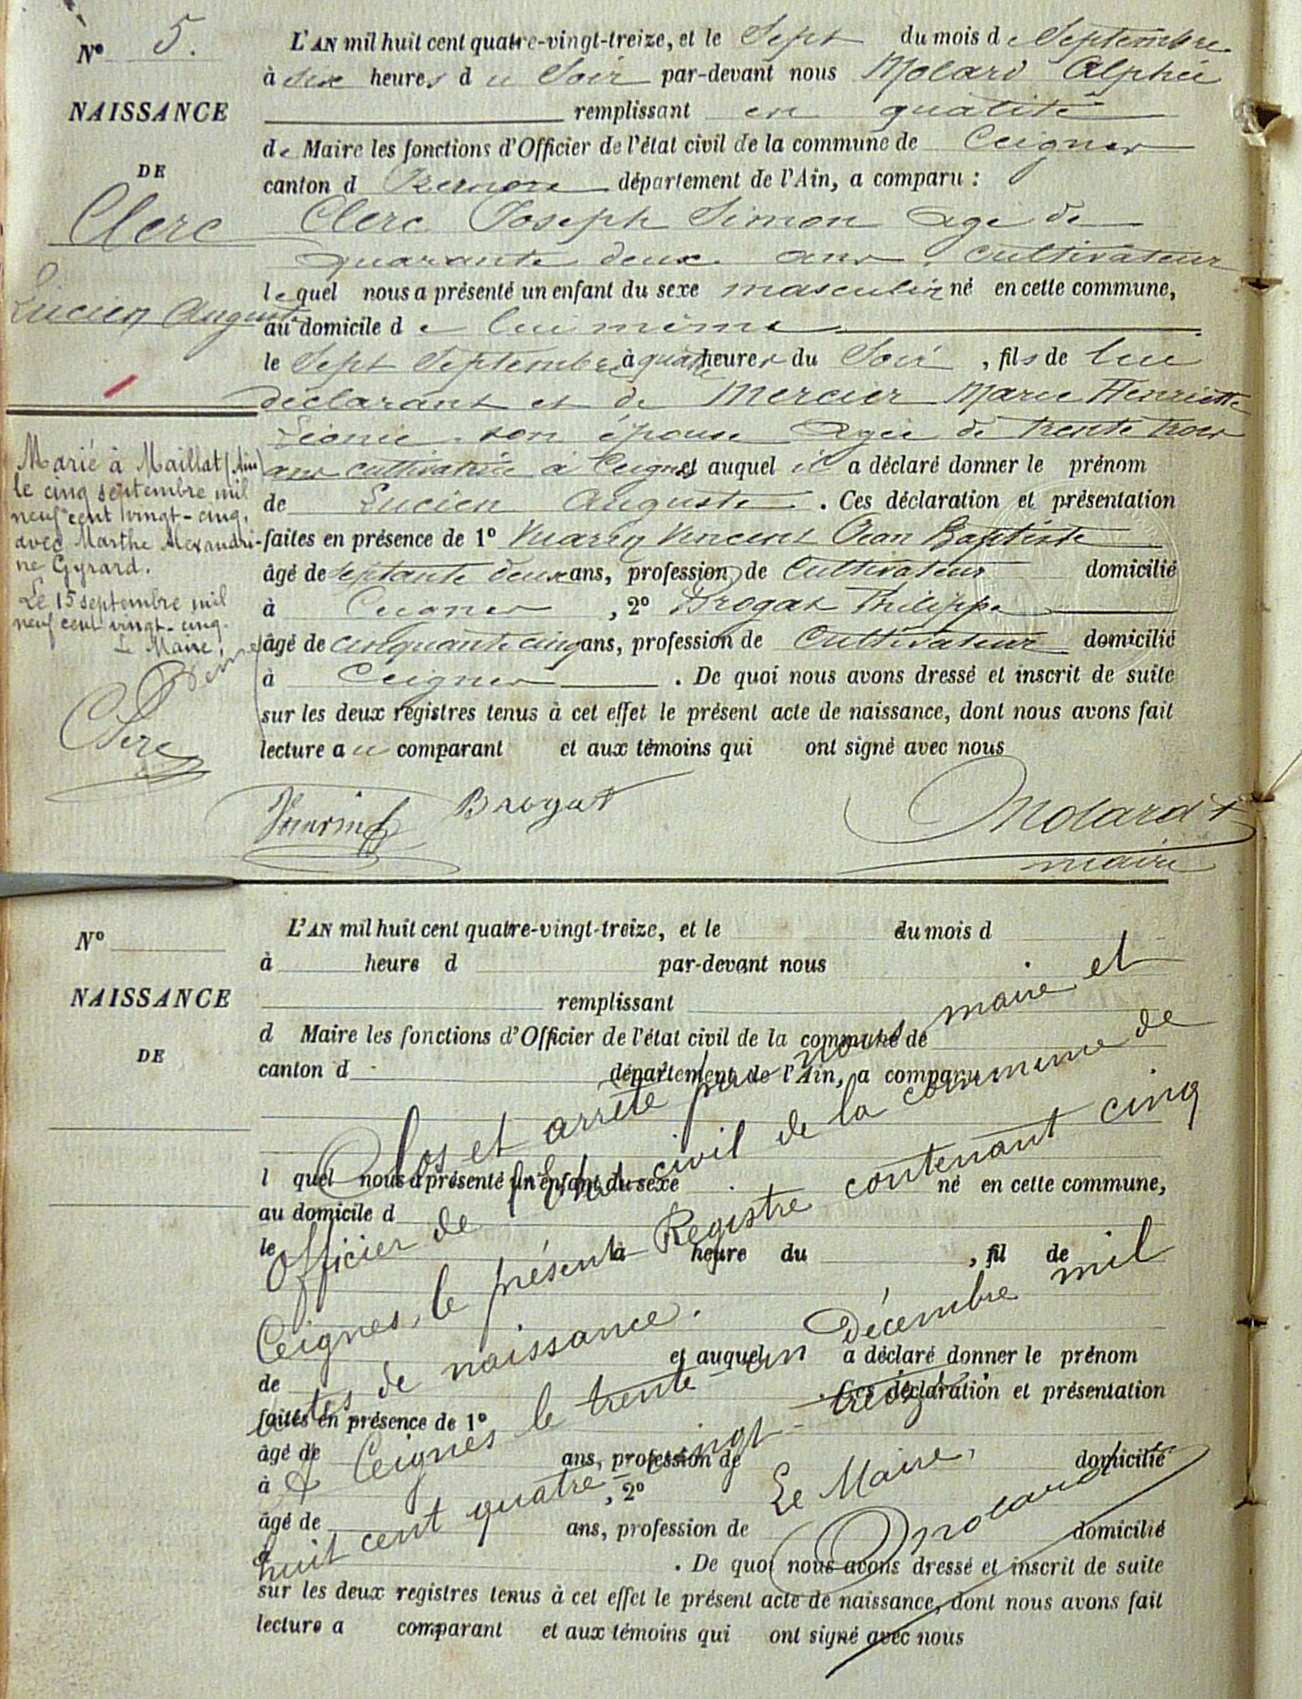 N° 5.
NAISSANCE
DE
Clerc
Lucien Auguste
Marié à Maillat (Ain)
le cinq septembre mil
neuf cent vingt-cinq,
avec Marthe Alexandri-
ne Gyrard.
Le 15 septembre mil
neuf cent vingt-cinq.
Le Maire,
L'AN mil huit cent quatre-vingt-treize, et le Sept du mois de Septembre
à six heures du Soir par-devant nous Molard Alphée
remplissant en qualité
de Maire les fonctions d'Officier de l'état civil de la commune de Ceignes
canton d département de l'Ain, a comparu :
Clerc Joseph Simon age de
quarante deux ans, cultivateur
lequel nous a présenté un enfant du sexe masculin né en cette commune,
au domicile de lui même
le Sept Septembre à quatre heures du Soir, fils de lui
déclarant et de Mercier Marie Henriette
Léonie son épouse agée de trente trois
ans cultivatrice à Ceignes et auquel il a déclaré donner le prénom
de Lucien Auguste. Ces déclaration et présentation
faites en présence de 1° Vuarin Vincent Jean Baptiste
âgé de septante deux ans, profession de Cultivateur domicilié
à Ceignes, 2° Brogat Philippe
âgé de cinquante cinq ans, profession de Cultivateur domicilié
à Ceignes. De quoi nous avons dressé et inscrit de suite
sur les deux registres tenus à cet effet le présent acte de naissance, dont nous avons fait
lecture au comparant et aux témoins qui ont signé avec nous
Clerc
Vuarin Brogat Molard
maire
N°
NAISSANCE
DE
L'AN mil huit cent quatre-vingt-treize, et le du mois d
à heure d par-devant nous
remplissant
d Maire les fonctions d'Officier de l'état civil de la commune de
canton d département de l'Ain, a comparu
l quel nous a présenté un enfant du sexe né en cette commune,
au domicile d
le à heure du , fil de
et auquel a déclaré donner le prénom
de . Ces déclaration et présentation
faites en présence de 1°
âgé de ans, profession de domicilié
à , 2°
âgé de ans, profession de domicilié
à . De quoi nous avons dressé et inscrit de suite
sur les deux registres tenus à cet effet le présent acte de naissance, dont nous avons fait
lecture a comparant et aux témoins qui ont signé avec nous
Clos et arrêté par nous maire et
Officier de l'Etat civil de la commune de
Ceignes, le présent Registre contenant cinq
actes de naissance.
A Ceignes le trente-un Décembre mil
huit cent quatre-vingt-treize.
Le Maire,
Molard